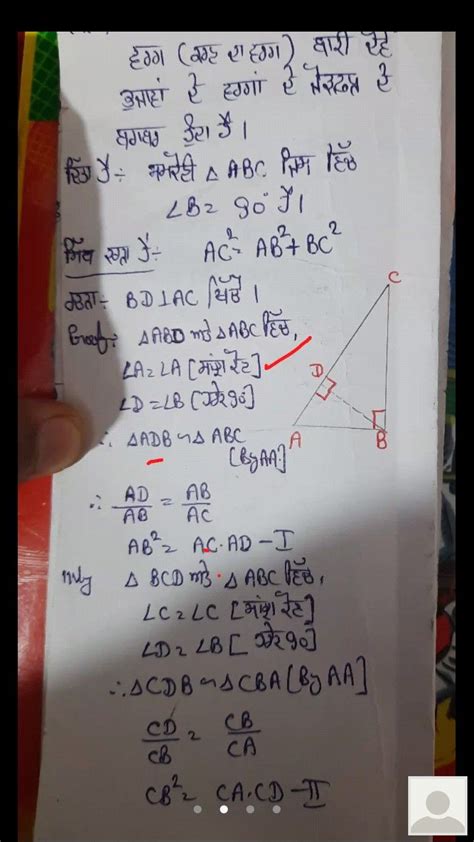 ਵਰਗ (ਕਰਣ ਦਾ ਵਰਗ) ਬਾਕੀ ਦੋਵੇਂ
ਭੁਜਾਵਾਂ ਦੇ ਵਰਗਾਂ ਦੇ ਜੋੜਫਲ ਦੇ
ਬਰਾਬਰ ਹੁੰਦਾ ਹੈ।
ਦਿੱਤਾ ਹੈ:- ਸਮਕੋਣੀ △ ABC ਜਿਸ ਵਿੱਚ
∠B = 90° ਹੈ।
ਸਿੱਧ ਕਰਨਾ ਹੈ:- AC² = AB² + BC²
ਰਚਨਾ:- BD ⊥ AC ਖਿੱਚੋ।
Proof:- △ABD ਅਤੇ △ABC ਵਿੱਚ,
∠A = ∠A [ਸਾਂਝਾ ਕੋਣ]
∠D = ∠B [ਹਰੇਕ 90]
∴ △ADB ∼ △ABC
[By AA]
∴ AD/AB = AB/AC
AB² = AC·AD – I
|||ly △ BCD ਅਤੇ △ABC ਵਿੱਚ,
∠C = ∠C [ਸਾਂਝਾ ਕੋਣ]
∠D = ∠B [ਹਰੇਕ 90]
∴ △CDB ∼ △CBA [By AA]
CD/CB = CB/CA
CB² = CA·CD – II
C
D
A
B